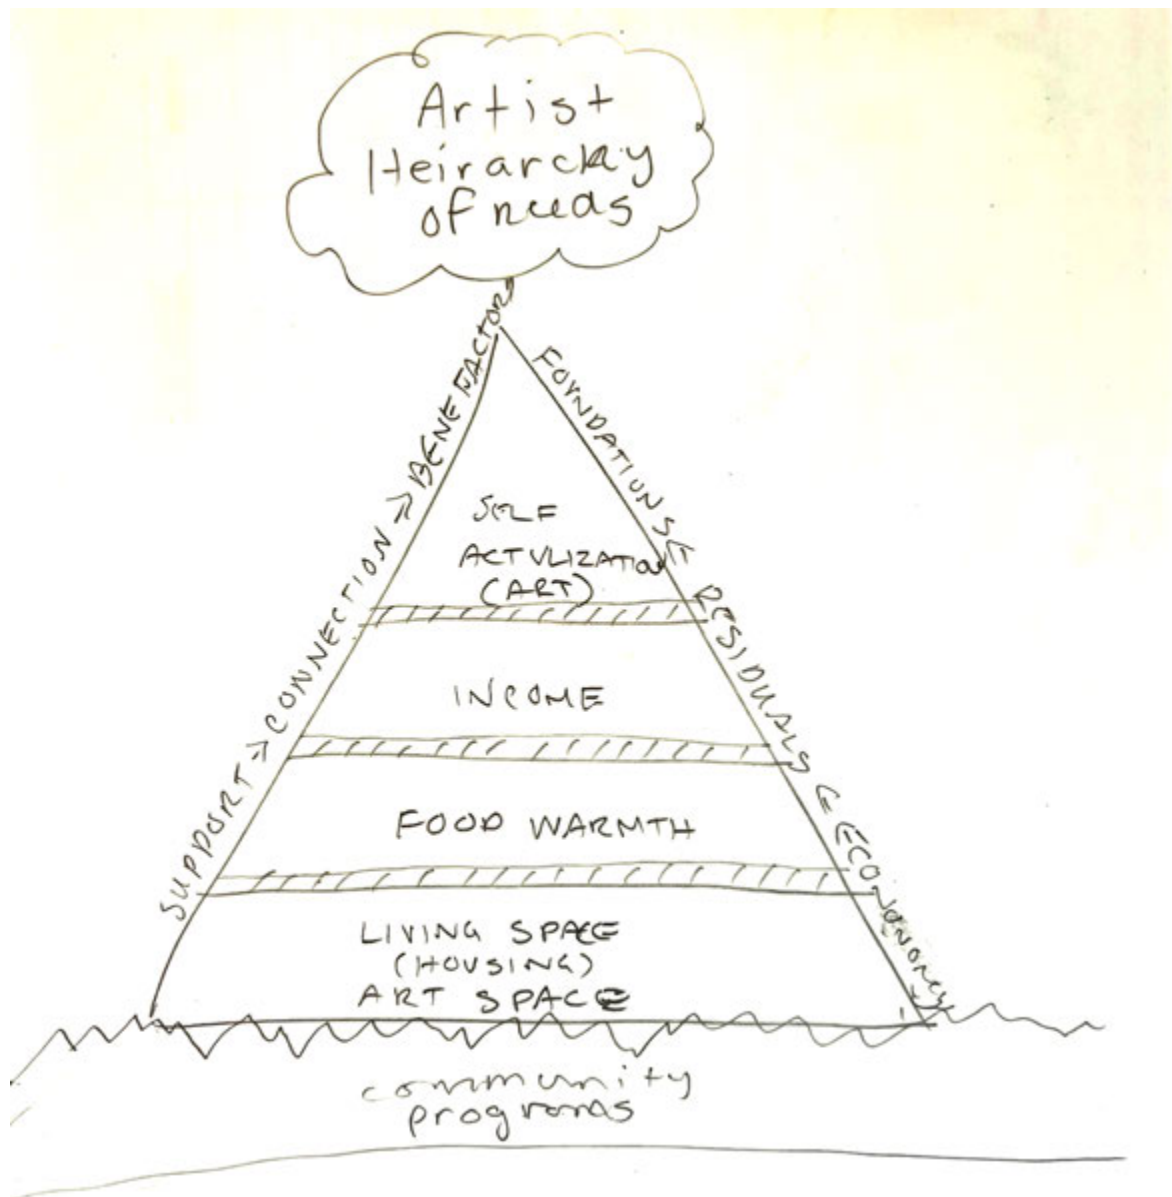 Artist
Heirarchy
of needs
SUPPORT > CONNECTION > BENEFACTORS
FOUNDATIONS < RESIDUALS < ECONONOMY
SELF
ACTULIZATION
(ART)
INCOME
FOOD WARMTH
LIVING SPACE
(HOUSING)
ART SPACE
community
programs